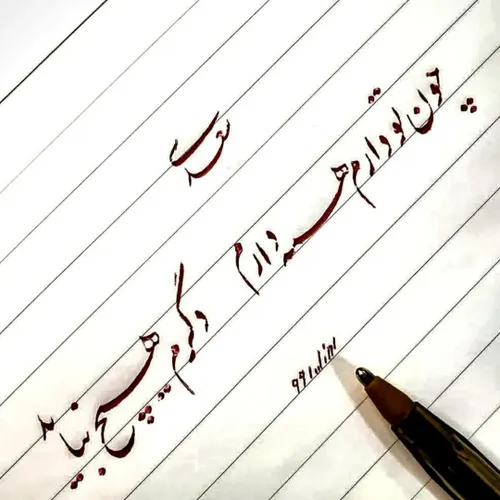 چون تو دارم همه دارم دگرم هیچ نباید
سعدی